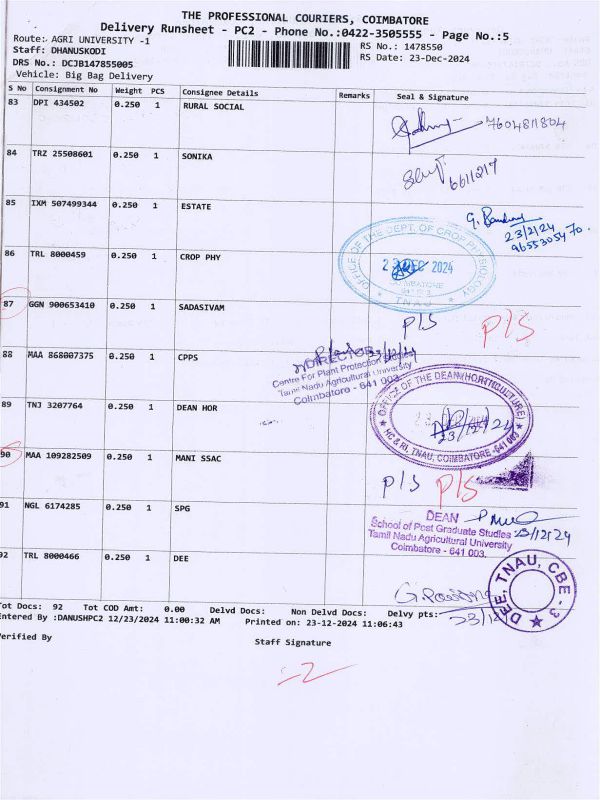 THE PROFESSIONAL COURIERS, COIMBATORE
Delivery Runsheet - PC2 - Phone No.:0422-3505555 - Page No.:5
Route: AGRI UNIVERSITY -1
Staff: DHANUSKODI
DRS No.: DCJB147855005
Vehicle: Big Bag Delivery
RS No.: 1478550
RS Date: 23-Dec-2024
S No Consignment No Weight PCS Consignee Details Remarks Seal & Signature
83 DPI 434502 0.250 1 RURAL SOCIAL
7604811804
84 TRZ 25508601 0.250 1 SONIKA
6611217
85 IXM 507499344 0.250 1 ESTATE
23/2/24
9655305470.
86 TRL 8000459 0.250 1 CROP PHY
OFFICE OF THE DEPT. OF CROP PHYSIOLOGY
23 DEC 2024
COIMBATORE
TNAU
87 GGN 900653410 0.250 1 SADASIVAM
P/S P/S
88 MAA 868007375 0.250 1 CPPS
DIRECTOR
Centre For Plant Protection Studies
Tamil Nadu Agricultural University
Coimbatore - 641 003.
89 TNJ 3207764 0.250 1 DEAN HOR
OFFICE OF THE DEAN (HORTICULTURE)
23/12/24
HC & RI, TNAU, COIMBATORE -641 003
90 MAA 109282509 0.250 1 MANI SSAC
P/S P/S
91 NGL 6174285 0.250 1 SPG
DEAN
School of Post Graduate Studies 23/12/24
Tamil Nadu Agricultural University
Coimbatore - 641 003.
92 TRL 8000466 0.250 1 DEE
DEE, TNAU, CBE - 3
23/12
Tot Docs: 92 Tot COD Amt: 0.00 Delvd Docs: Non Delvd Docs: Delvy pts:
Entered By :DANUSHPC2 12/23/2024 11:00:32 AM Printed on: 23-12-2024 11:06:43
Verified By Staff Signature